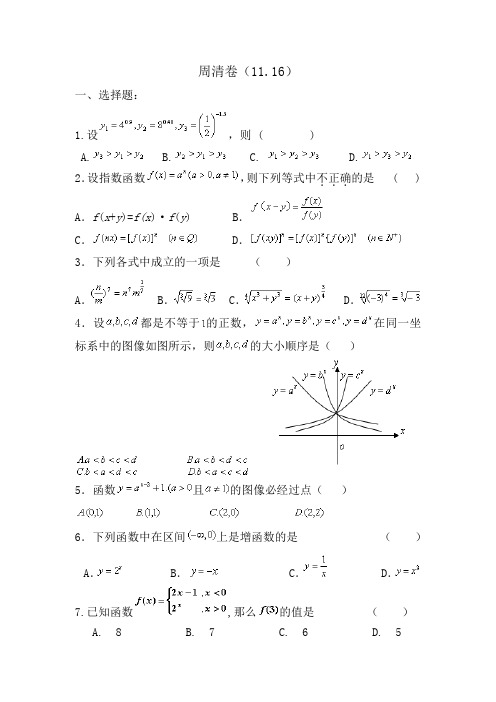 周清卷（11.16）
一、选择题：
1.设 y₁ = 4^0.9, y₂ = 8^0.48, y₃ = (1/2)^-1.5 ，则 ( )
A. y₃ > y₁ > y₂ B. y₂ > y₁ > y₃ C. y₁ > y₂ > y₃ D. y₁ > y₃ > y₂
2.设指数函数 f(x) = a^x (a > 0, a ≠ 1) ，则下列等式中不正确的是 ( )
A. f(x+y)=f(x)·f(y) B. f(x-y) = f(x)/f(y)
C. f(nx) = [f(x)]^n (n∈Q) D. [f(xy)]^n = [f(x)]^n [f(y)]^n (n∈N⁺)
3．下列各式中成立的一项是 （ ）
A. B. C. D.
4．设 a,b,c,d 都是不等于1的正数， y = a^x, y = b^x, y = c^x, y = d^x 在同一坐
标系中的图像如图所示，则 a,b,c,d 的大小顺序是（ ）
y
y = b^x y = c^x
y = a^x y = d^x
x
0
A.a < b < c < d B.a < b < d < c
C.b < a < d < c D.b < a < c < d
5．函数 y = a^(x-2) + 1.(a > 0且 a ≠ 1) 的图像必经过点（ ）
A.(0,1) B.(1,1) C.(2,0) D.(2,2)
6．下列函数中在区间 (-∞,0) 上是增函数的是 （ ）
A. y = 2^x B. y = -x C. y = 1/x D. y = x³
7.已知函数 f(x) = {2x-1 ,x<0
2^x ,x>0 ,那么 f(3) 的值是 （ ）
A. 8 B. 7 C. 6 D. 5